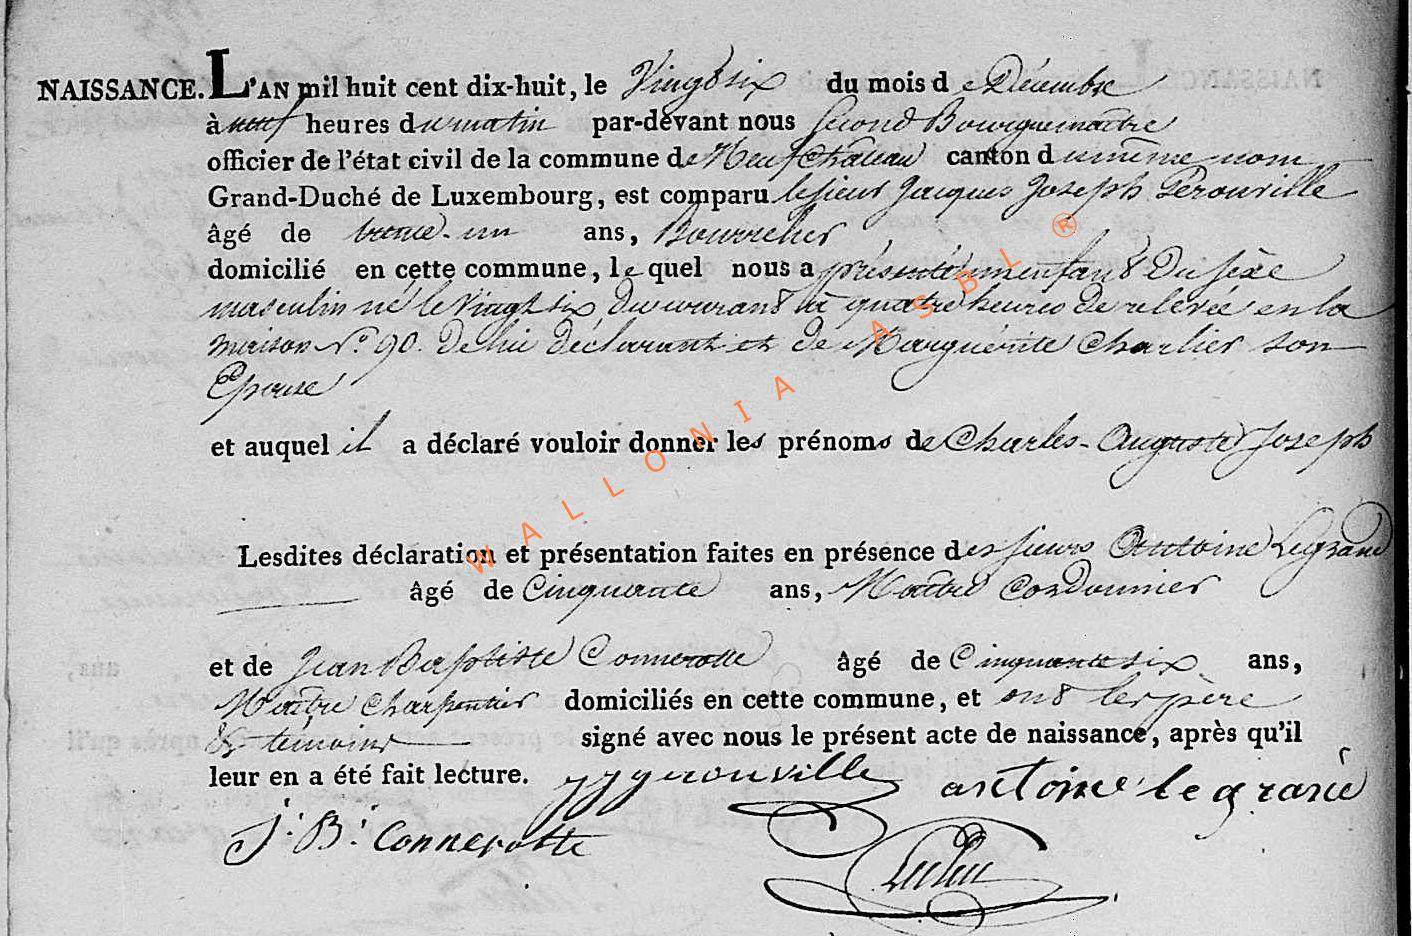 NAISSANCE. L'AN mil huit cent dix-huit, le Vingt six du mois de Décembre
à neuf heures du matin par-devant nous second Bourguemaitre
officier de l'état civil de la commune de Neufchâteau canton du même nom
Grand-Duché de Luxembourg, est comparu le sieur Jacques Joseph Gérouville
âgé de trente-un ans,
domicilié en cette commune, lequel nous a présenté un enfant Du sèxe
masculin né le vingt six Du courant à quatre heures De relevée en la
maison N.° 90. De lui déclarant et de Marguérite Charlier son
Epouse
et auquel il a déclaré vouloir donner les prénoms de Charles-Auguste Joseph
Lesdites déclaration et présentation faites en présence des sieurs Antoine Legrand
âgé de Cinquante ans, Maitre Cordonnier
et de Jean Baptiste Connerotte âgé de Cinquante six ans,
Maitre Charpentier domiciliés en cette commune, et ont les père
& témoins signé avec nous le présent acte de naissance, après qu'il
leur en a été fait lecture. jj gerouville antoine legrand
J. B. Connerotte
WALLONIA ASBL ®